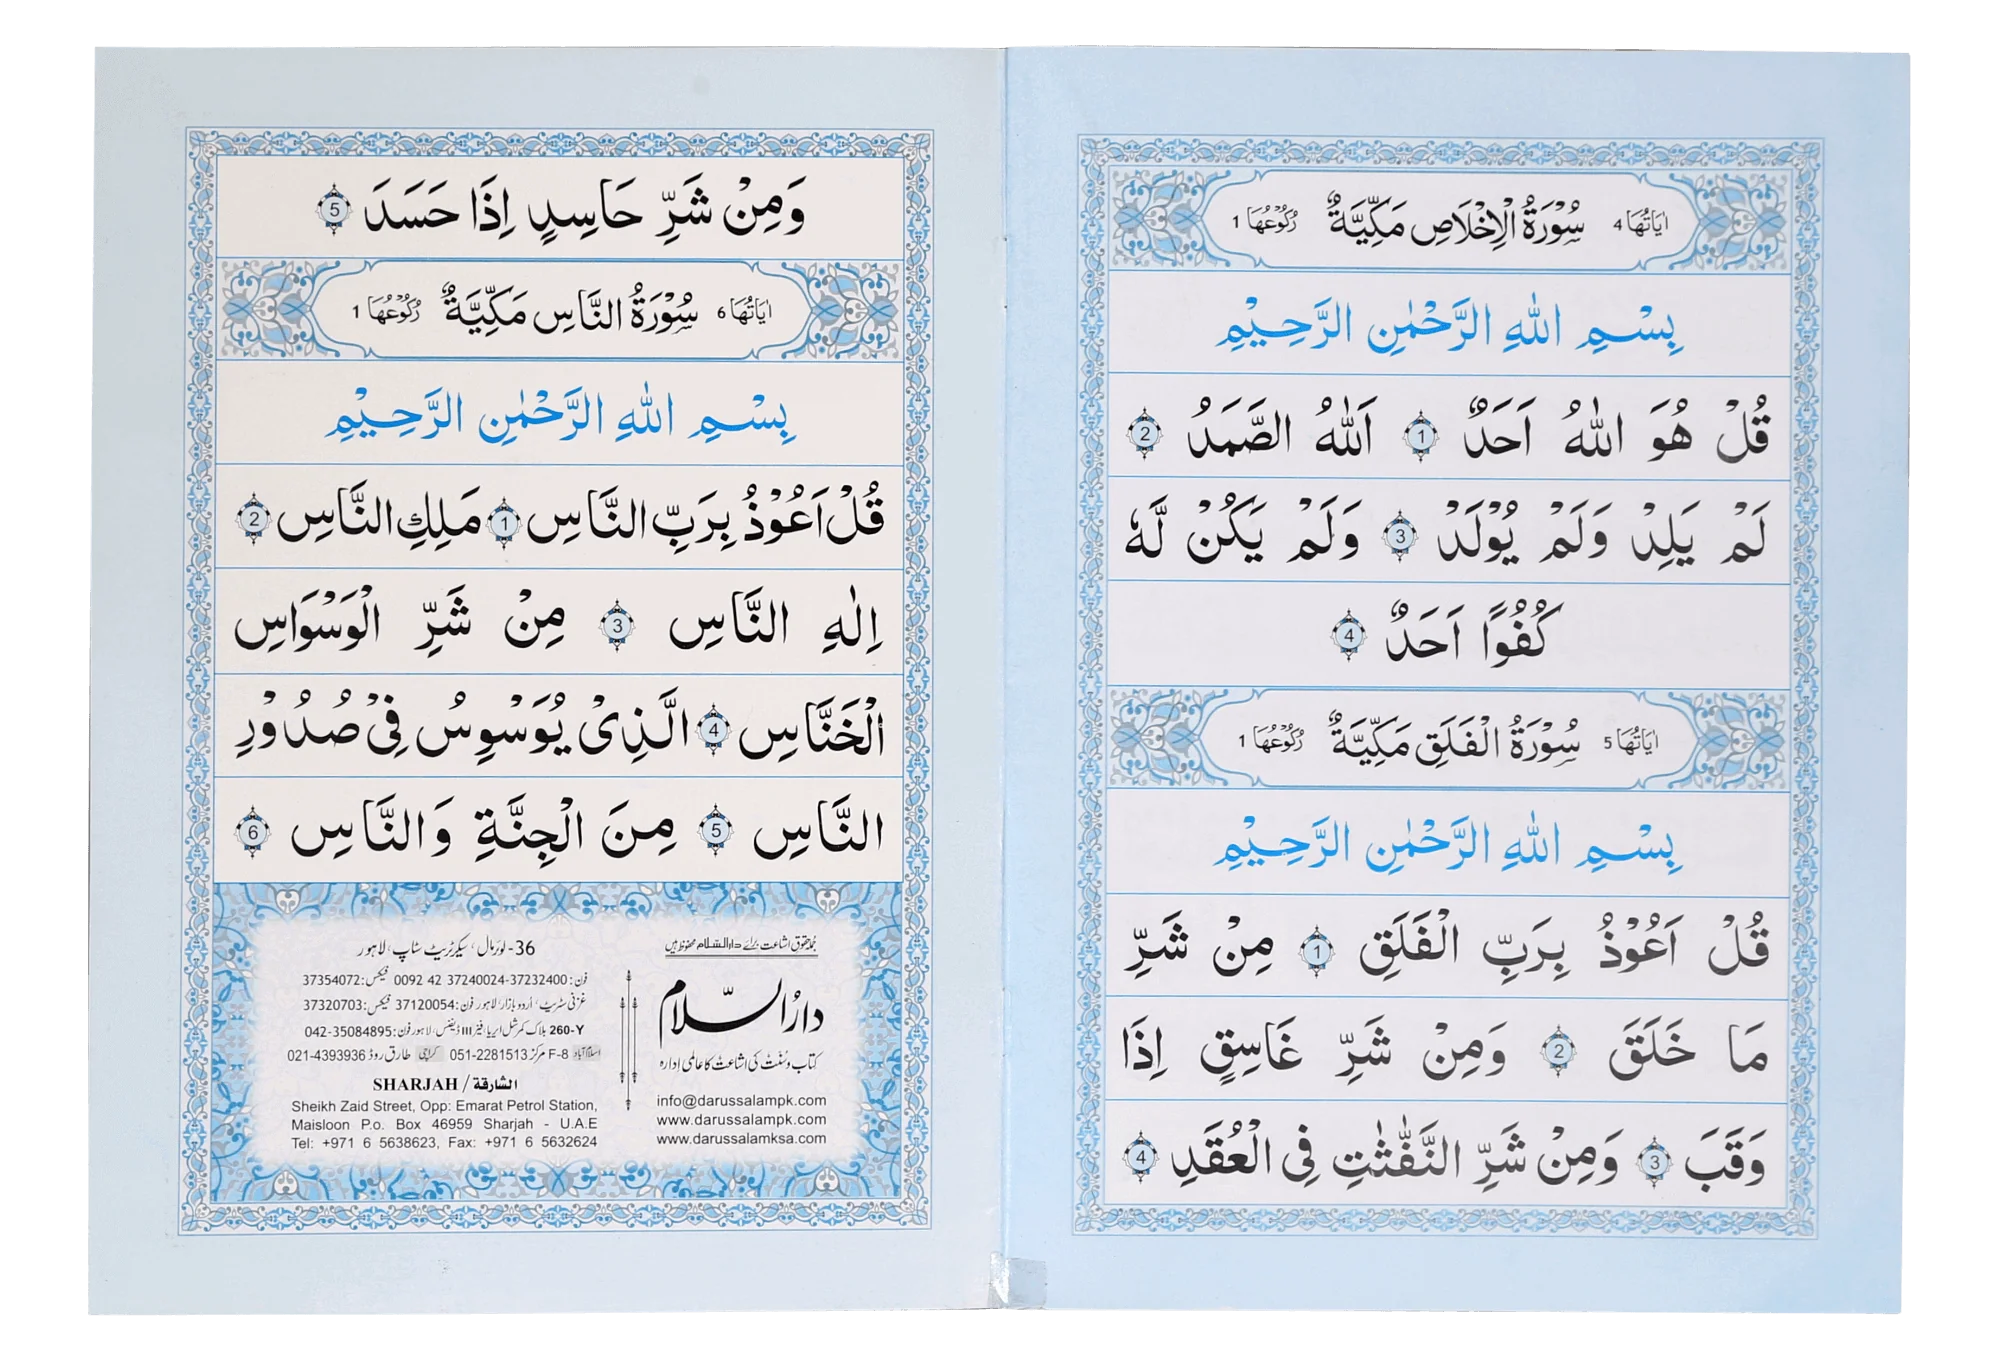 اٰيَاتُهَا 4 سُوْرَةُ الْاِخْلَاصِ مَكِّيَّةٌ رُكُوْعُهَا 1
بِسْمِ اللّٰهِ الرَّحْمٰنِ الرَّحِيْمِ
قُلْ هُوَ اللّٰهُ اَحَدٌ 1 اَللّٰهُ الصَّمَدُ 2
لَمْ يَلِدْ وَلَمْ يُوْلَدْ 3 وَلَمْ يَكُنْ لَّهٗ
كُفُوًا اَحَدٌ 4
اٰيَاتُهَا 5 سُوْرَةُ الْفَلَقِ مَكِّيَّةٌ رُكُوْعُهَا 1
بِسْمِ اللّٰهِ الرَّحْمٰنِ الرَّحِيْمِ
قُلْ اَعُوْذُ بِرَبِّ الْفَلَقِ 1 مِنْ شَرِّ
مَا خَلَقَ 2 وَمِنْ شَرِّ غَاسِقٍ اِذَا
وَقَبَ 3 وَمِنْ شَرِّ النَّفّٰثٰتِ فِى الْعُقَدِ 4
وَمِنْ شَرِّ حَاسِدٍ اِذَا حَسَدَ 5
اٰيَاتُهَا 6 سُوْرَةُ النَّاسِ مَكِّيَّةٌ رُكُوْعُهَا 1
بِسْمِ اللّٰهِ الرَّحْمٰنِ الرَّحِيْمِ
قُلْ اَعُوْذُ بِرَبِّ النَّاسِ 1 مَلِكِ النَّاسِ 2
اِلٰهِ النَّاسِ 3 مِنْ شَرِّ الْوَسْوَاسِ
الْخَنَّاسِ 4 الَّذِىْ يُوَسْوِسُ فِىْ صُدُوْرِ
النَّاسِ 5 مِنَ الْجِنَّةِ وَالنَّاسِ 6
جملہ حقوق اشاعت برائے دارالسلام محفوظ ہیں
دارُالسّلام
کتاب و سُنّت کی اشاعت کا عالمی ادارہ
info@darussalampk.com
www.darussalampk.com
www.darussalamksa.com
36- لوئر مال، سیکرٹریٹ سٹاپ، لاہور
فون: 0092 42 37240024-37232400 فیکس: 37354072
غزنی سٹریٹ، اُردو بازار لاہور فون: 37120054 فیکس: 37320703
260-Y بلاک کمرشل ایریا، فیز III ڈیفنس، لاہور فون: 042-35084895
اسلام آباد F-8 مرکز 051-2281513 کراچی طارق روڈ 021-4393936
SHARJAH / الشارقة
Sheikh Zaid Street, Opp: Emarat Petrol Station,
Maisloon P.o. Box 46959 Sharjah - U.A.E
Tel: +971 6 5638623, Fax: +971 6 5632624